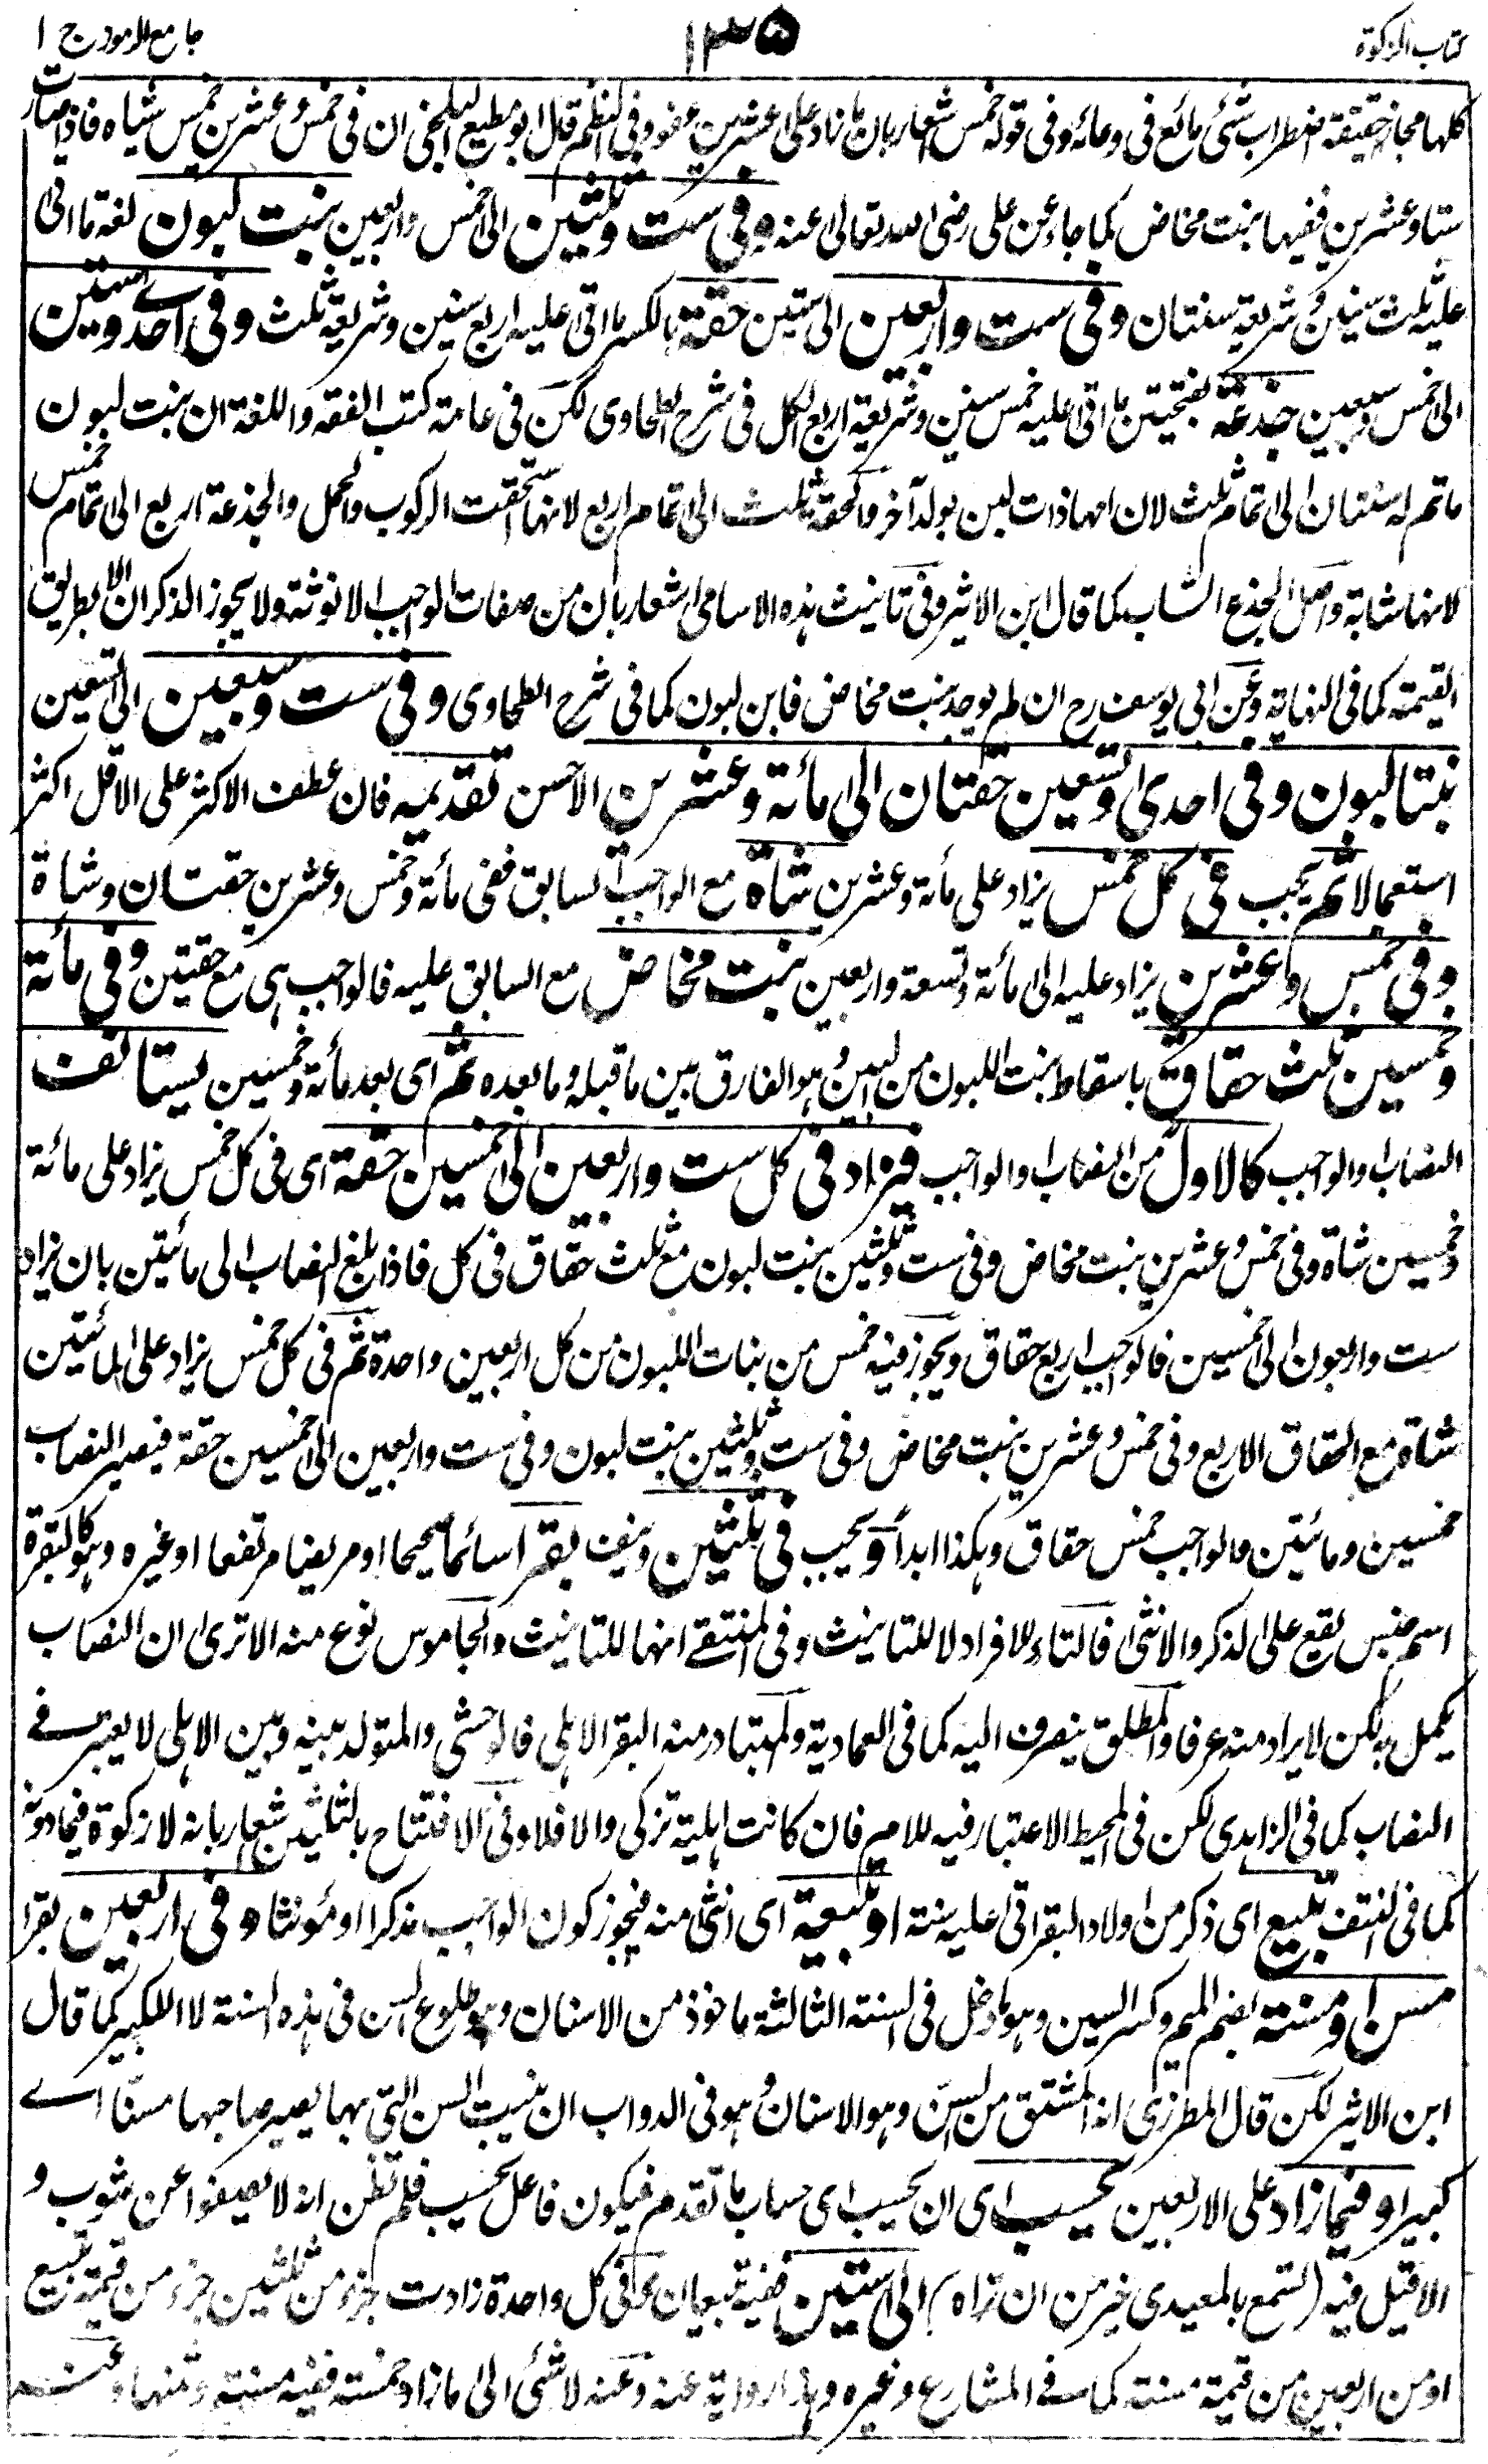 کتاب الزکوة ١٣٥ جامع الرموز ج ا
کلها مجاز حقیقة اضطراب شئی مائع فی وعائه وفی قوله خمس اشعار بان ما زاد علی عشرین عفو وفی النظم قال ابو مطیع البلخی ان فی خمس وعشرین خمس شیاه فاذا صارت
ستا وعشرین ففیها بنت مخاض کما جاء عن علی رضی الله تعالی عنه وفی ست وثلثین الی خمس واربعین بنت لبون لغة ما اتی
علیه ثلث سنین وشریعة سنتان وفی ست واربعین الی ستین حقة بالکسر ما اتی علیه اربع سنین وشریعة ثلث وفی احدے وستین
الی خمس وسبعین جذعة بفتحتین ما اتی علیه خمس سنین وشریعة اربع الکل فی شرح الطحاوی لکن فی عامة کتب الفقه واللغة ان بنت لبون
ما تم له سنتان الی تمام ثلث لان امها ذات لبن بولد آخر والحقة ثلث الی تمام اربع لانها استحقت الرکوب والحمل والجذعة اربع الی تمام خمس
لانها شابة واصل الجذع الشاب کما قال ابن الاثیر وفی تانیث هذه الاسامی اشعار بان من صفات الواجب الانوثة ولا یجوز الذکران الا بطریق
القیمة کما فی النهایة وعن ابی یوسف رح ان لم یوجد بنت مخاض فابن لبون کما فی شرح الطحاوی وفی ست وسبعین الی تسعین
بنتا لبون وفی احدی وتسعین حقتان الی مائة وعشرین الاحسن تقدیمه فان عطف الاکثر علی الاقل اکثر
استعمالا ثم یجب فی کل خمس یزاد علی مأة وعشرین شاة مع الواجب السابق ففی مائة وخمس وعشرین حقتان وشاة
وفی خمس وعشرین یزاد علیه الی مائة وتسعة واربعین بنت مخاض مع السابق علیه فالواجب هی مع حقتین وفی مائة
وخمسین ثلث حقاق باسقاط بنت اللبون من البین وهو الفارق بین ما قبله وما بعده ثم ای بعد مأئة وخمسین یستانف
النصاب والواجب کالاول من النصاب والواجب فیزاد فی کل ست واربعین الی خمسین حقة ای فی کل خمس یزاد علی مائة
وخمسین شاة وفی خمس وعشرین بنت مخاض وفی ست وثلثین بنت لبون مع ثلث حقاق فی کل فاذا بلغ النصاب الی مائتین بان یزاد
ست واربعون الی خمسین فالواجب اربع حقاق ویجوز فیه خمس من بنات اللبون من کل اربعین واحدة ثم فی کل خمس یزاد علی المائتین
شاة مع الحقاق الاربع وفی خمس وعشرین بنت مخاض وفی ست وثلثین بنت لبون وفی ست واربعین الی خمسین حقة فیصیر النصاب
خمسین ومائتین والواجب خمس حقاق وهکذا ابداً ویجب فی ثلثین ونیف بقرا سائما صحیحا او مریضا مرتفعا او غیره وهو کالبقرة
اسم جنس یقع علی الذکر والانثی فالتاء للافراد لا للتانیث وفی المنتقے انها للتانیث والجاموس نوع منه الا تری ان النصاب
یکمل به لکن لا یراد منه عرفا والمطلق ینصرف الیه کما فی العمادیة والمتبادر منه البقر الاهلی فالوحشی والمتولد بینه وبین الاهلی لا یعتبر فے
النصاب کما فی الزاهدی لکن فی المحیط الاعتبار فیه للام فان کانت اهلیة تزکی والا فلا وفی الافتتاح بالثلثین اشعار بانه لا زکوة فیما دونه
کما فی النتف تبیع ای ذکر من اولاد البقر اتی علیه سنة او تبیعة ای انثی منه فیجوز کون الواجب مذکرا او مؤنثا وفی اربعین بقرا
مسن او مسنة بضم المیم وکسر السین وهو ما دخل فی السنة الثالثة ماخوذ من الاسنان وهو طلوع السن فی هذه السنة لا الکبیر کما قال
ابن الاثیر لکن قال المطرزی انه المشتق من السن وهو الاسنان وهو فی الدواب ان ینبت السن التی بها یصیر صاحبها مسنّا اے
کبیرا وفیما زاد علی الاربعین یحسب ای ان یحسب ای حساب ما تقدم فیکون فاعل یحسب فلم تظن انه لا یصفوا عن شوب و
الا قیل فیه (تسمع بالمعیدی خیر من ان تراه) الی ستین ففیه تبیعان وفی کل واحدة زادت جزء من ثلثین جزء من قیمة تبیع
او من اربعین من قیمة مسنة کما فے المشارع وغیره وهذا روایة عنه وعنه لا شئی الی ما زاد خمسة ففیه مسنة وثمنها وعنه